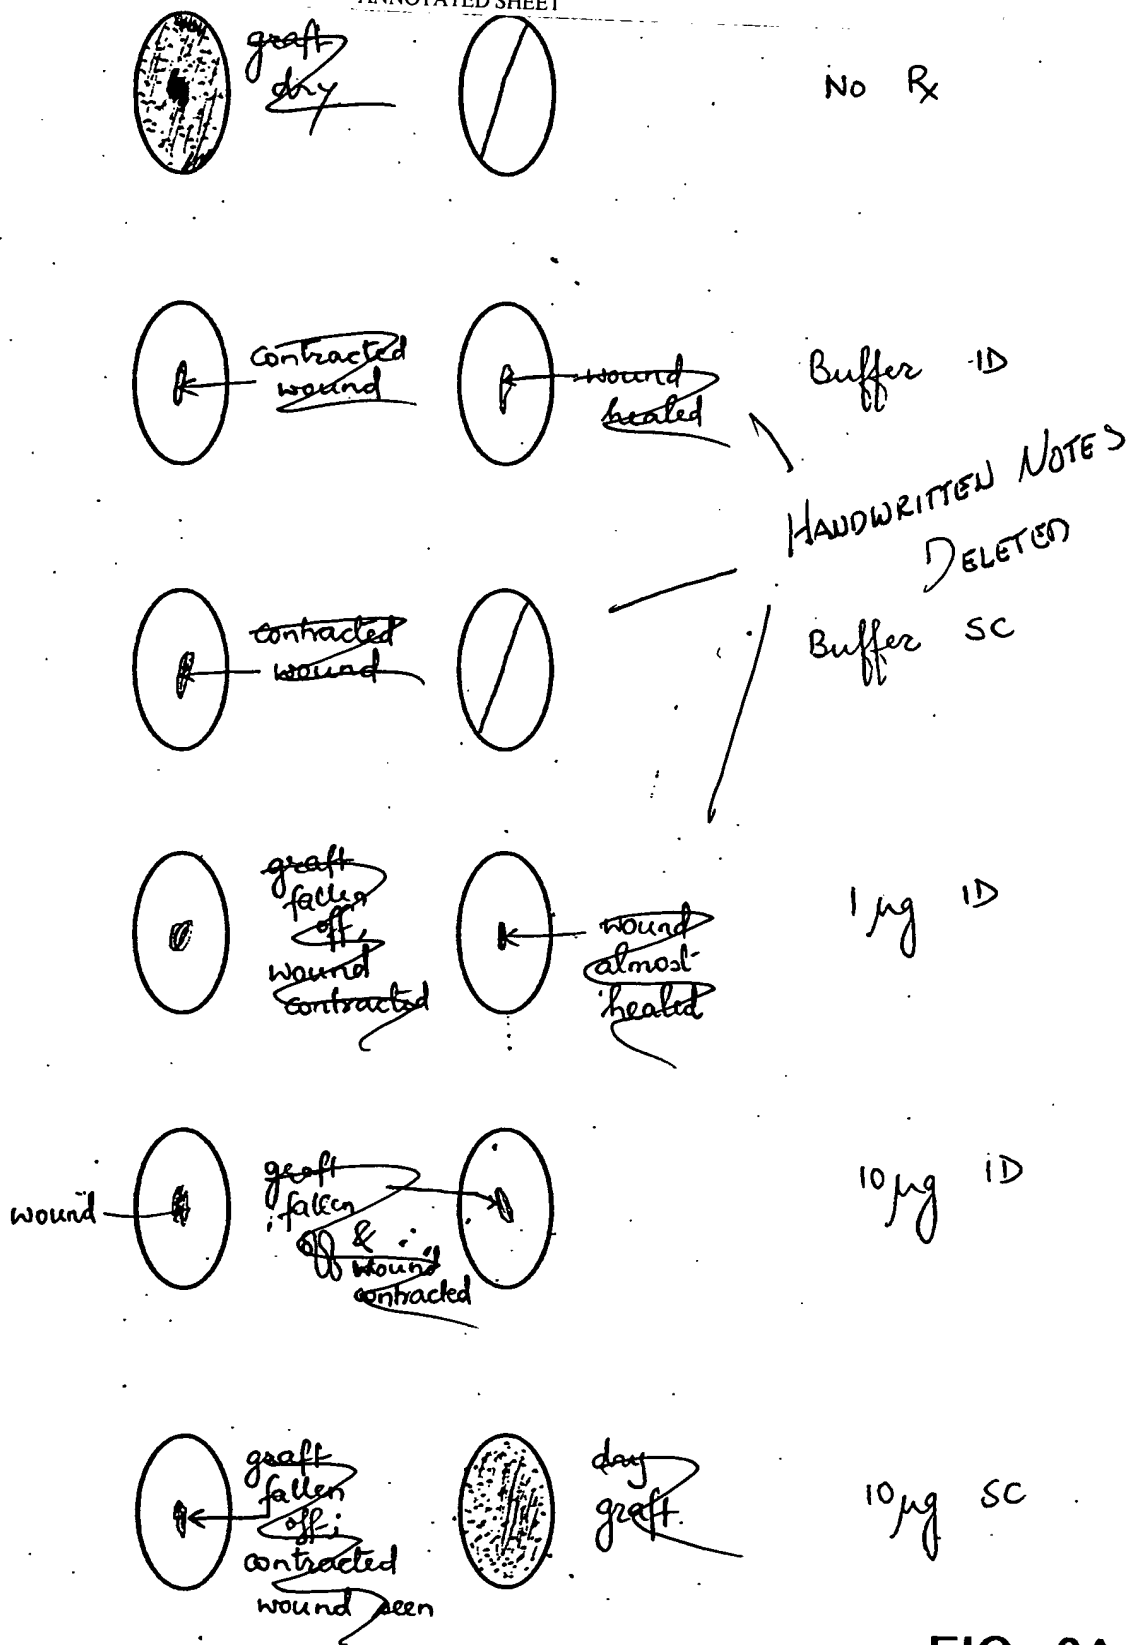 ANNOTATED SHEET
graft
dry
No Rx
contracted
wound
wound
healed
Buffer ID
HANDWRITTEN NOTES
DELETED
contracted
wound
Buffer SC
graft
fallen
off,
wound
contracted
wound
almost
healed
1 µg ID
wound
graft
fallen
off &
wound
contracted
10 µg ID
graft
fallen
off;
contracted
wound seen
dry
graft.
10 µg SC